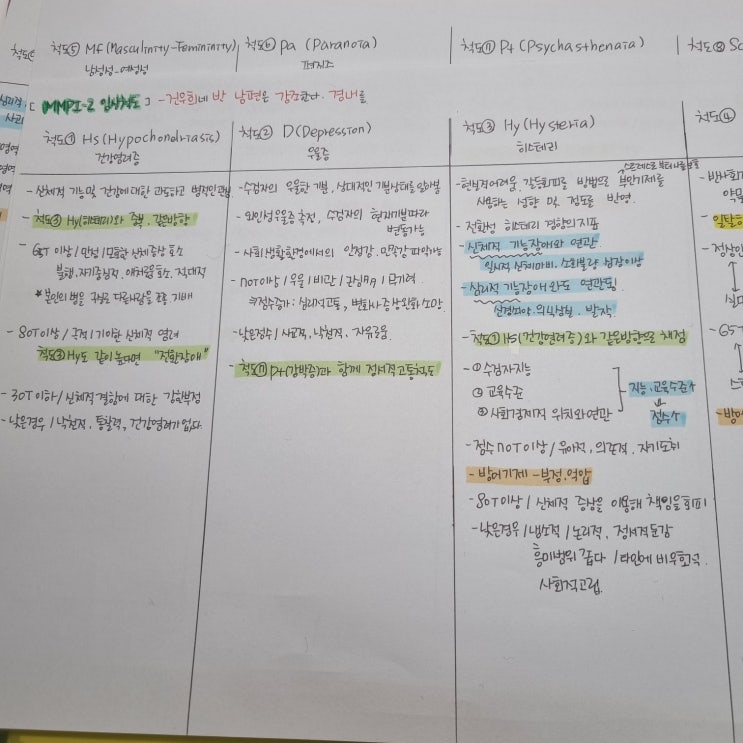 척도⑤ Mf (Masculinity-Femininity)
남성성-여성성
척도⑥ Pa (Paranoia)
편집증
척도⑦ Pt (Psychasthenia)
척도⑧ Sc
[MMPI-2 임상척도] - 건우희네 반 남편은 강조한다. 경내를
척도① Hs (Hypochondriasis)
건강염려증
- 신체적 기능 및 건강에 대한 과도하고 병적인 관심
- 척도③ Hy(히스테리)와 중복, 같은방향
- 65T 이상 / 만성 / 모호한 신체증상 호소
불행, 자기중심적, 애처럼 호소, 적대적
* 본인의 병을 구실로 다른사람을 조종, 지배
- 80T이상 / 극적 / 기이한 신체적 염려
척도③ Hy도 같이 높다면 "전환장애"
- 30T이하 / 신체적 결함에 대한 강한부정
- 낮은경우 / 낙천적, 통찰력, 건강염려가 없다.
척도② D (Depression)
우울증
- 수검자의 우울한 기분, 상대적인 기분상태를 알아봄
- 외인성우울증 측정, 수검자의 현재기분따라
변동가능
- 사회생활환경에서의 안정감, 만족감 파악가능
- 70T이상 / 우울 / 비관 / 무기력
측정수증가 : 심리적고통, 변화나 증상완화 소망
- 낮은점수 / 사교적, 낙천적, 자유로움
- 척도⑦ Pt(강박증)과 함께 정서적고통척도
척도③ Hy (Hysteria)
히스테리
스트레스로부터 나를 보호
- 현실적어려움, 갈등회피를 방법으로 부인기제를
사용하는 성향 및 정도를 반영.
- 전환성 히스테리 경향의 지표
- 신체적 기능장애와 연관.
일시적 신체마비, 소화불량 심장이상
- 심리적 기능장애와도 연관됨!
신경쇠약, 의식상실, 발작
- 척도① HS(건강염려증)와 같은방향으로 채점
- ① 수검자지능
② 교육수준
③ 사회경제적 위치와연관
지능, 교육수준↑
점수↑
- 점수 70T이상 / 유아적, 의존적, 자기도취
- 방어기제 - 부정, 억압
- 80T이상 / 신체적 증상을 이용해 책임을 회피
- 낮은경우 / 냉소적 / 논리적, 정서적둔감
흥미범위 좁다 / 타인에 비우호적
사회적고립.
척도④
- 반사회
- 65T